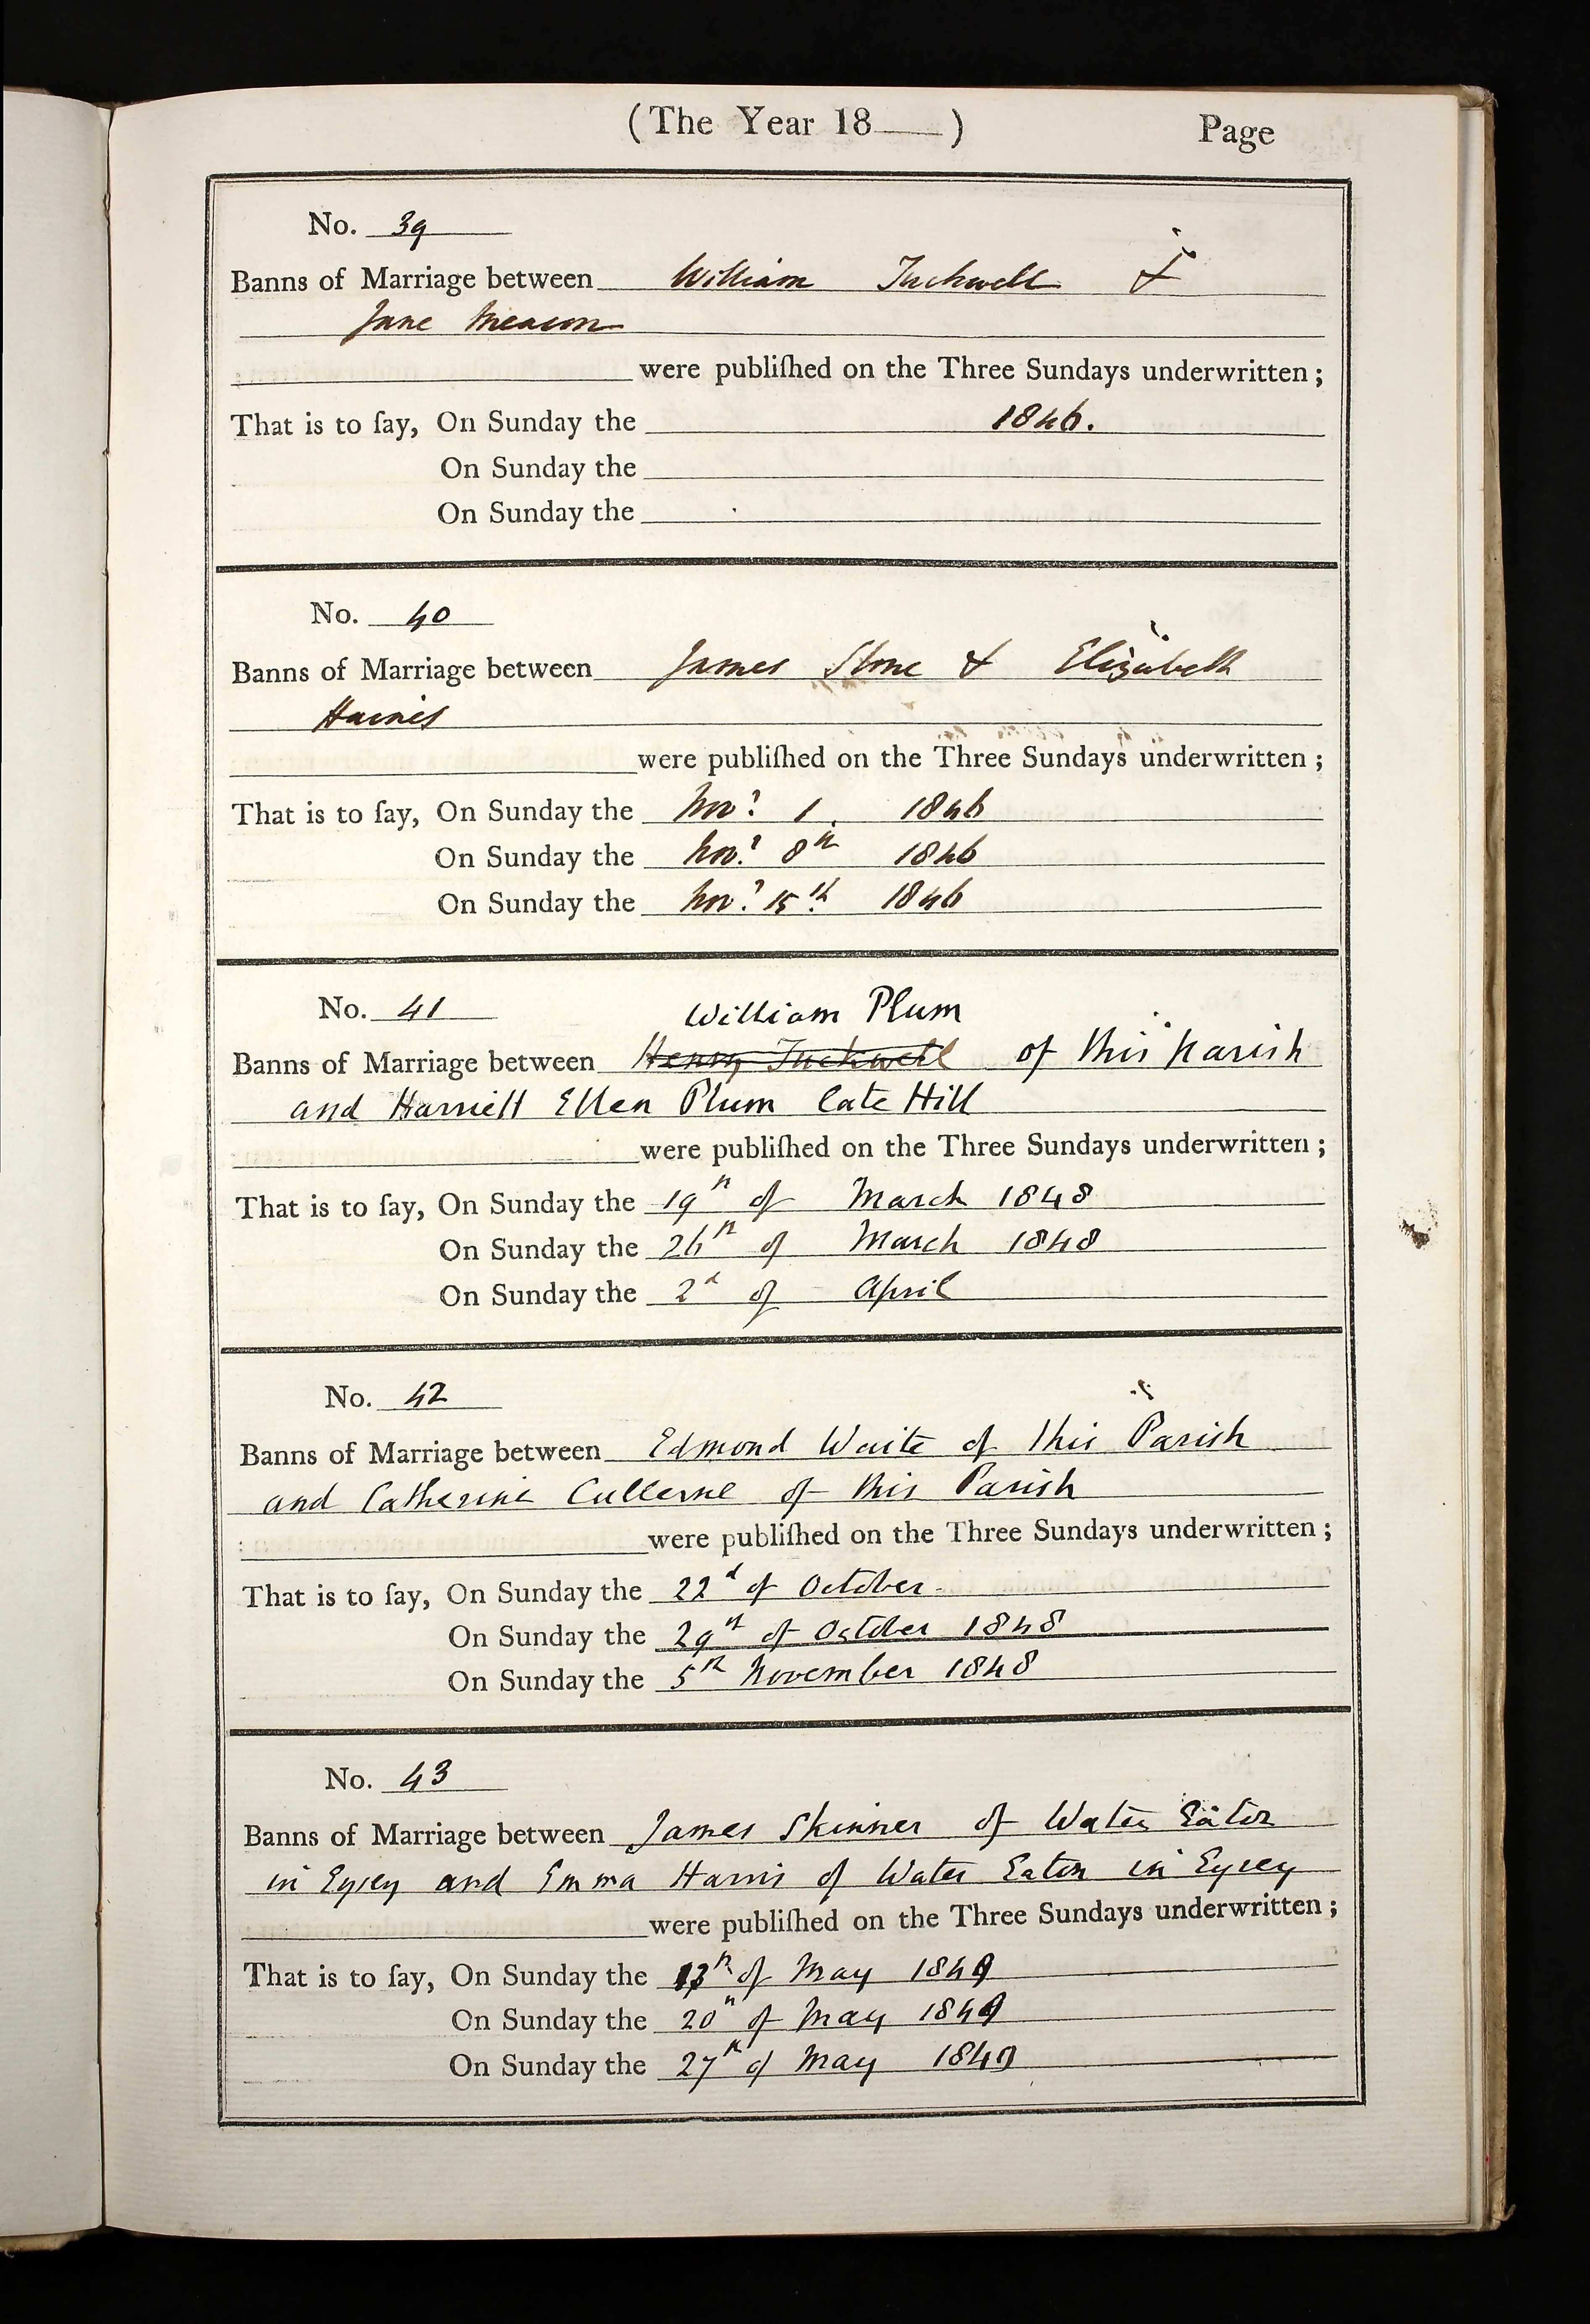 (The Year 18 )
Page
No. 39
Banns of Marriage between William Tuckwell &
Jane
were publiſhed on the Three Sundays underwritten ;
That is to ſay, On Sunday the 1846.
On Sunday the
On Sunday the
No. 40
Banns of Marriage between James Stone & Elizabeth
Haines
were publiſhed on the Three Sundays underwritten ;
That is to ſay, On Sunday the Novr 1. 1846
On Sunday the Novr 8th 1846
On Sunday the Novr 15th 1846
No. 41
William Plum
Banns of Marriage between Henry Tuckwell of this Parish
and Harriett Ellen Plum late Hill
were publiſhed on the Three Sundays underwritten ;
That is to ſay, On Sunday the 19th of March 1848
On Sunday the 26th of March 1848
On Sunday the 2d of April
No. 42
Banns of Marriage between Edmond Waite of this Parish
and Catherine Cullerne of this Parish
were publiſhed on the Three Sundays underwritten ;
That is to ſay, On Sunday the 22d of October
On Sunday the 29th of October 1848
On Sunday the 5th November 1848
No. 43
Banns of Marriage between James Skinner of Water Eaton
in Eysey and Emma Harris of Water Eaton in Eysey
were publiſhed on the Three Sundays underwritten ;
That is to ſay, On Sunday the 13th of May 1849
On Sunday the 20th of May 1849
On Sunday the 27th of May 1849